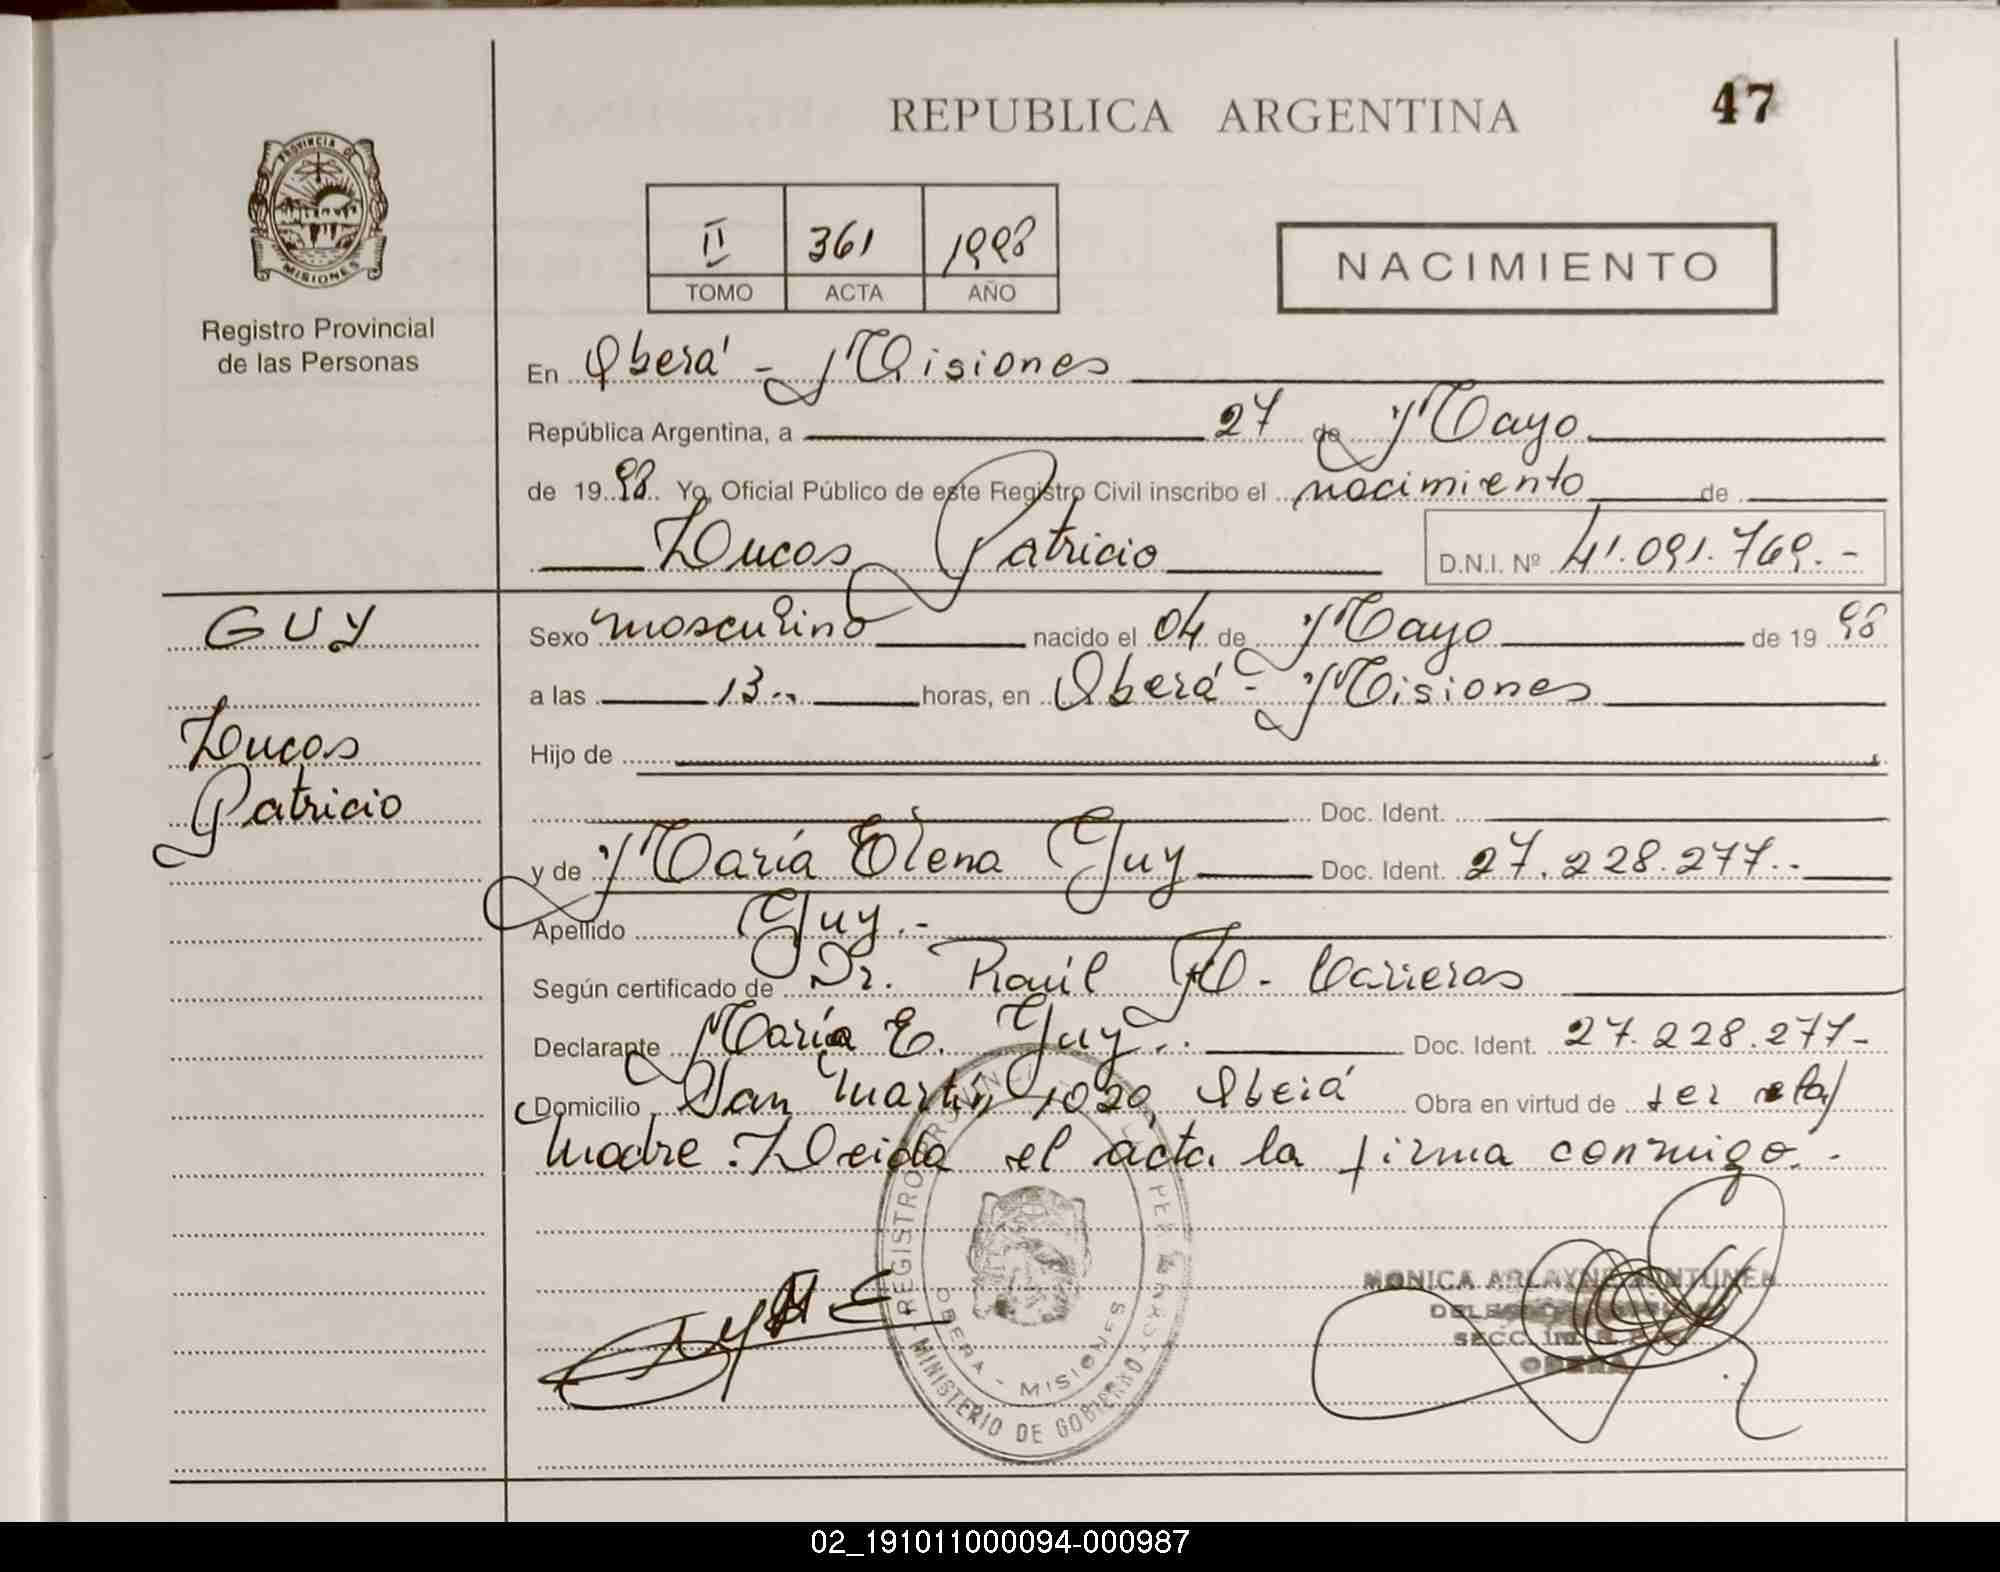 REPUBLICA ARGENTINA
47
PROVINCIA DE
MISIONES
Registro Provincial
de las Personas
II 361 1998
TOMO ACTA AÑO
NACIMIENTO
En Oberá - Misiones
República Argentina, a 27 de Mayo
de 1998 Yo, Oficial Público de este Registro Civil inscribo el nacimiento de
Lucas Patricio D.N.I. Nº 41.091.769.-
GUY
Lucas
Patricio
Sexo masculino nacido el 04 de Mayo de 1998
a las 13.. horas, en Oberá - Misiones
Hijo de
Doc. Ident.
y de María Elena Guy Doc. Ident. 27.228.277..
Apellido Guy.-
Según certificado de Dr. Raúl
Declarante María E. Guy.. Doc. Ident. 27.228.277-
Domicilio San Martín 1020 Oberá Obra en virtud de ser la
madre. Leida el acta la firma conmigo.-
REGISTRO PROVINCIAL DE LAS PERSONAS
OBERA - MISIONES
MINISTERIO DE GOBIERNO
MONICA
SECC.
OBERA
02_191011000094-000987